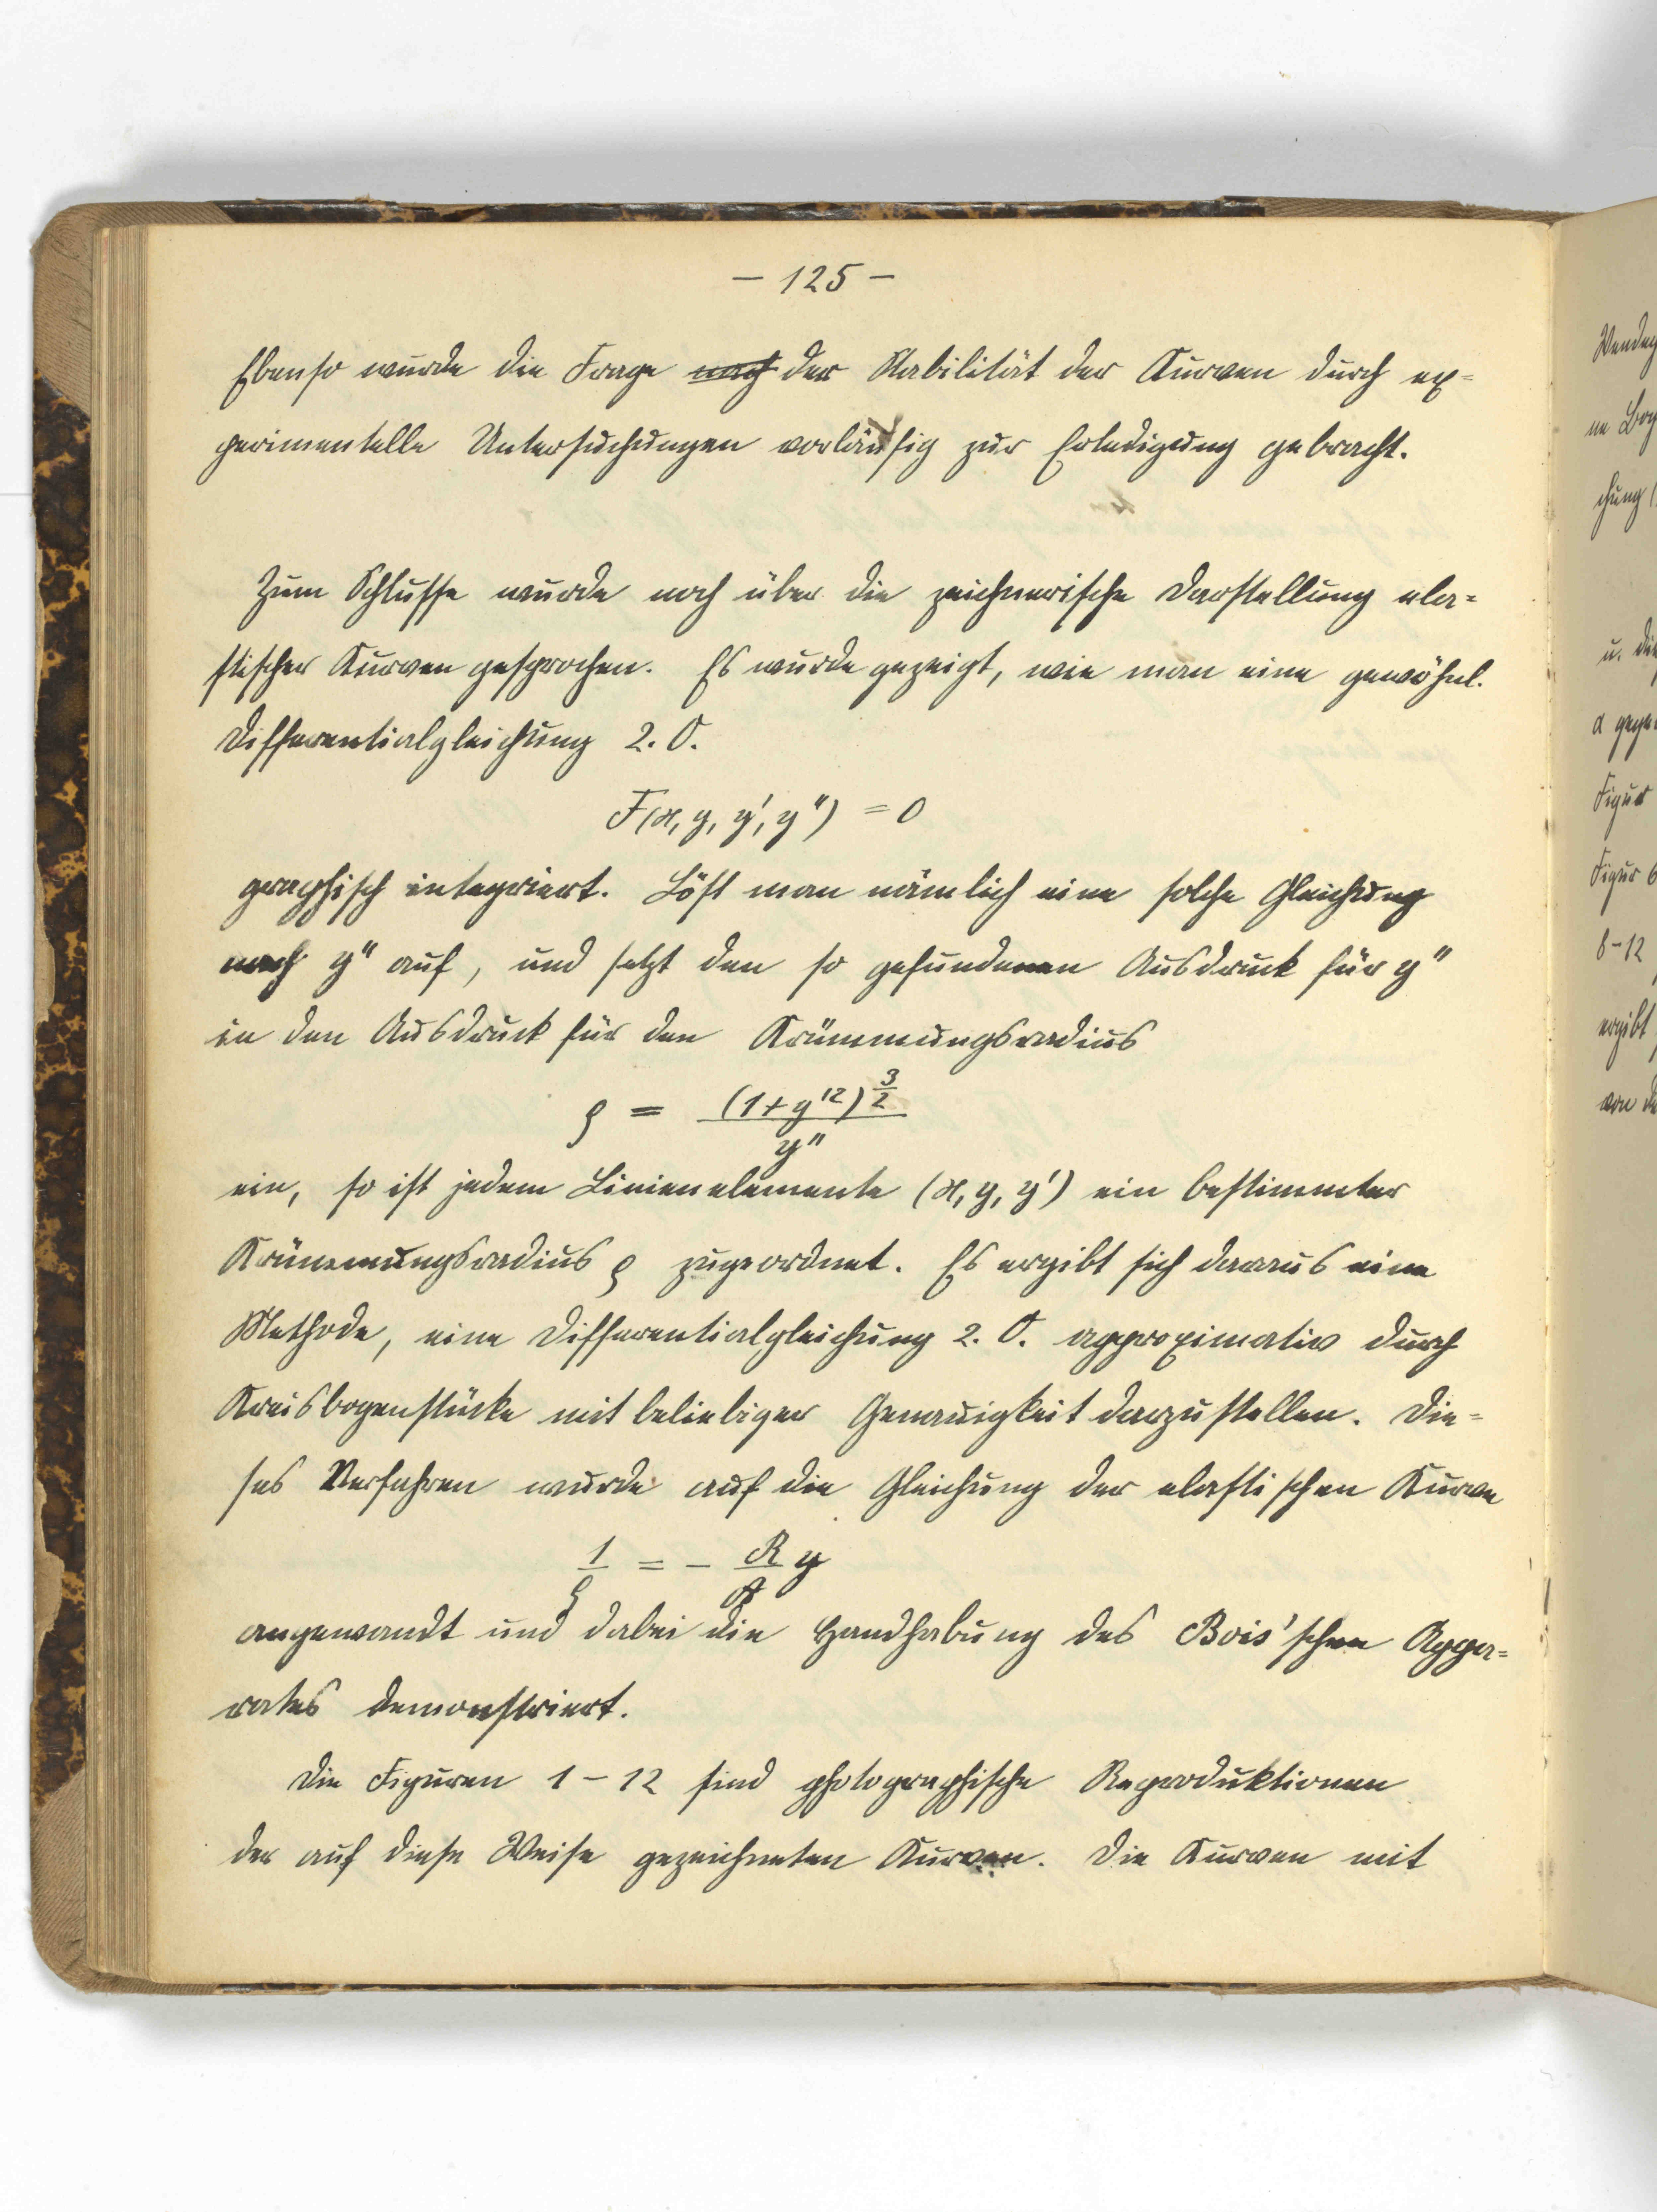 – 125 –
Ebenso wurde die Frage nach der Stabilität der Kurven durch ex-
perimentelle Untersuchungen vorläufig zur Erledigung gebracht.
Zum Schlusse wurde noch über die zeichnerische Darstellung ela-
stischer Kurven gesprochen. Es wurde gezeigt, wie man eine gewöhnl.
Differentialgleichung 2. O.
F(x, y, y', y'') = 0
graphisch integriert. Löst man nämlich eine solche Gleichung
nach y'' auf, und setzt den so gefundenen Ausdruck für y''
in den Ausdruck für den Krümmungsradius
ρ = (1+y'²)^(3/2) / y''
ein, so ist jedem Linienelemente (x, y, y') ein bestimmter
Krümmungsradius ρ zugeordnet. Es ergibt sich daraus eine
Methode, eine Differentialgleichung 2. O. approximativ durch
Kreisbogenstücke mit beliebiger Genauigkeit darzustellen. Die-
ses Verfahren wurde auf die Gleichung der elastischen Kurve
1/ρ = – R/A y
angewandt und dabei die Handhabung des Bois'schen Appa-
rates demonstriert.
Die Figuren 1 – 12 sind photographische Reproduktionen
der auf diese Weise gezeichneten Kurven. Die Kurven mit
Wendep
ne Bog
chung (
u. die
α gege
Figur
Figur 6
8–12
ergibt
von de